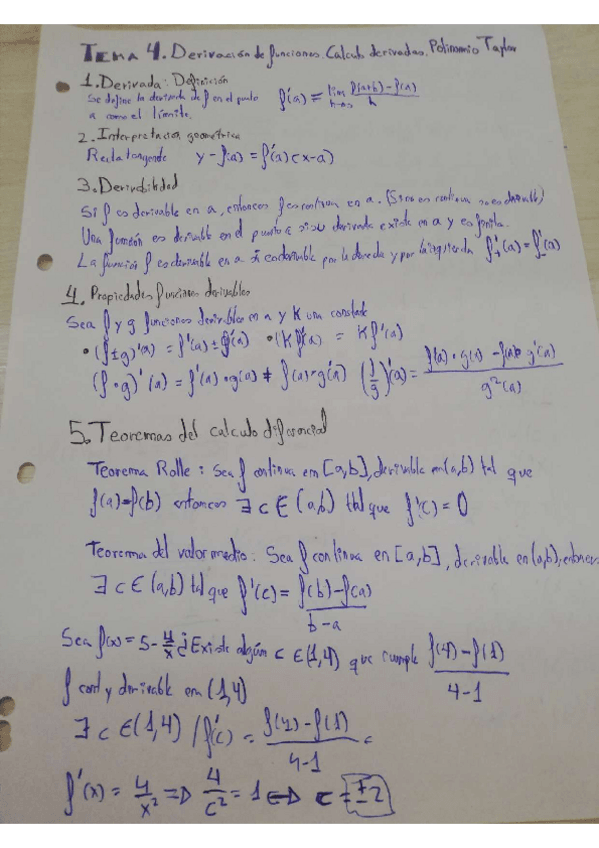 TEMA 4. Derivación de funciones. Calculo derivadas. Polinomio Taylor
1. Derivada: Definición
Se define la derivada de f en el punto a como el límite. f'(a) = lim h→0 f(a+h) - f(a) / h
2. Interpretacion geometrica
Recta tangende y - f(a) = f'(a)(x-a)
3. Derivabilidad
Si f es derivable en a, entonces f es continua en a. (Si no es continua no es derivable)
Una función es derivable en el punto a si su derivada existe en a y es finita.
La función f es derivable en a si es derivable por la derecha y por la izquierda f'₊(a) = f'₋(a)
4. Propiedades funciones derivables
Sea f y g funciones derivables en a y K una constante
• (f ± g)'(a) = f'(a) ± g'(a) • (Kf)'(a) = K f'(a)
(f · g)'(a) = f'(a) · g(a) + f(a) · g'(a) (1/g)'(a) = f'(a) · g(a) - f(a) · g'(a) / g²(a)
5. Teoremas del calculo diferencial
Teorema Rolle: Sea f continua en [a,b], derivable en (a,b) tal que
f(a)=f(b) entonces ∃ c ∈ (a,b) tal que f'(c) = 0
Teorema del valor medio: Sea f continua en [a,b], derivable en (a,b), entonces
∃ c ∈ (a,b) tal que f'(c) = f(b) - f(a) / b - a
Sea f(x) = 5 - 4/x ¿Existe algún c ∈ (1,4) que cumple f(4) - f(1) / 4-1
f cont y derivable en (1,4)
∃ c ∈ (1,4) / f'(c) = f(4) - f(1) / 4-1 =
f'(x) = 4/x² ⇒ 4/c² = 1 ⇔ c = ±2